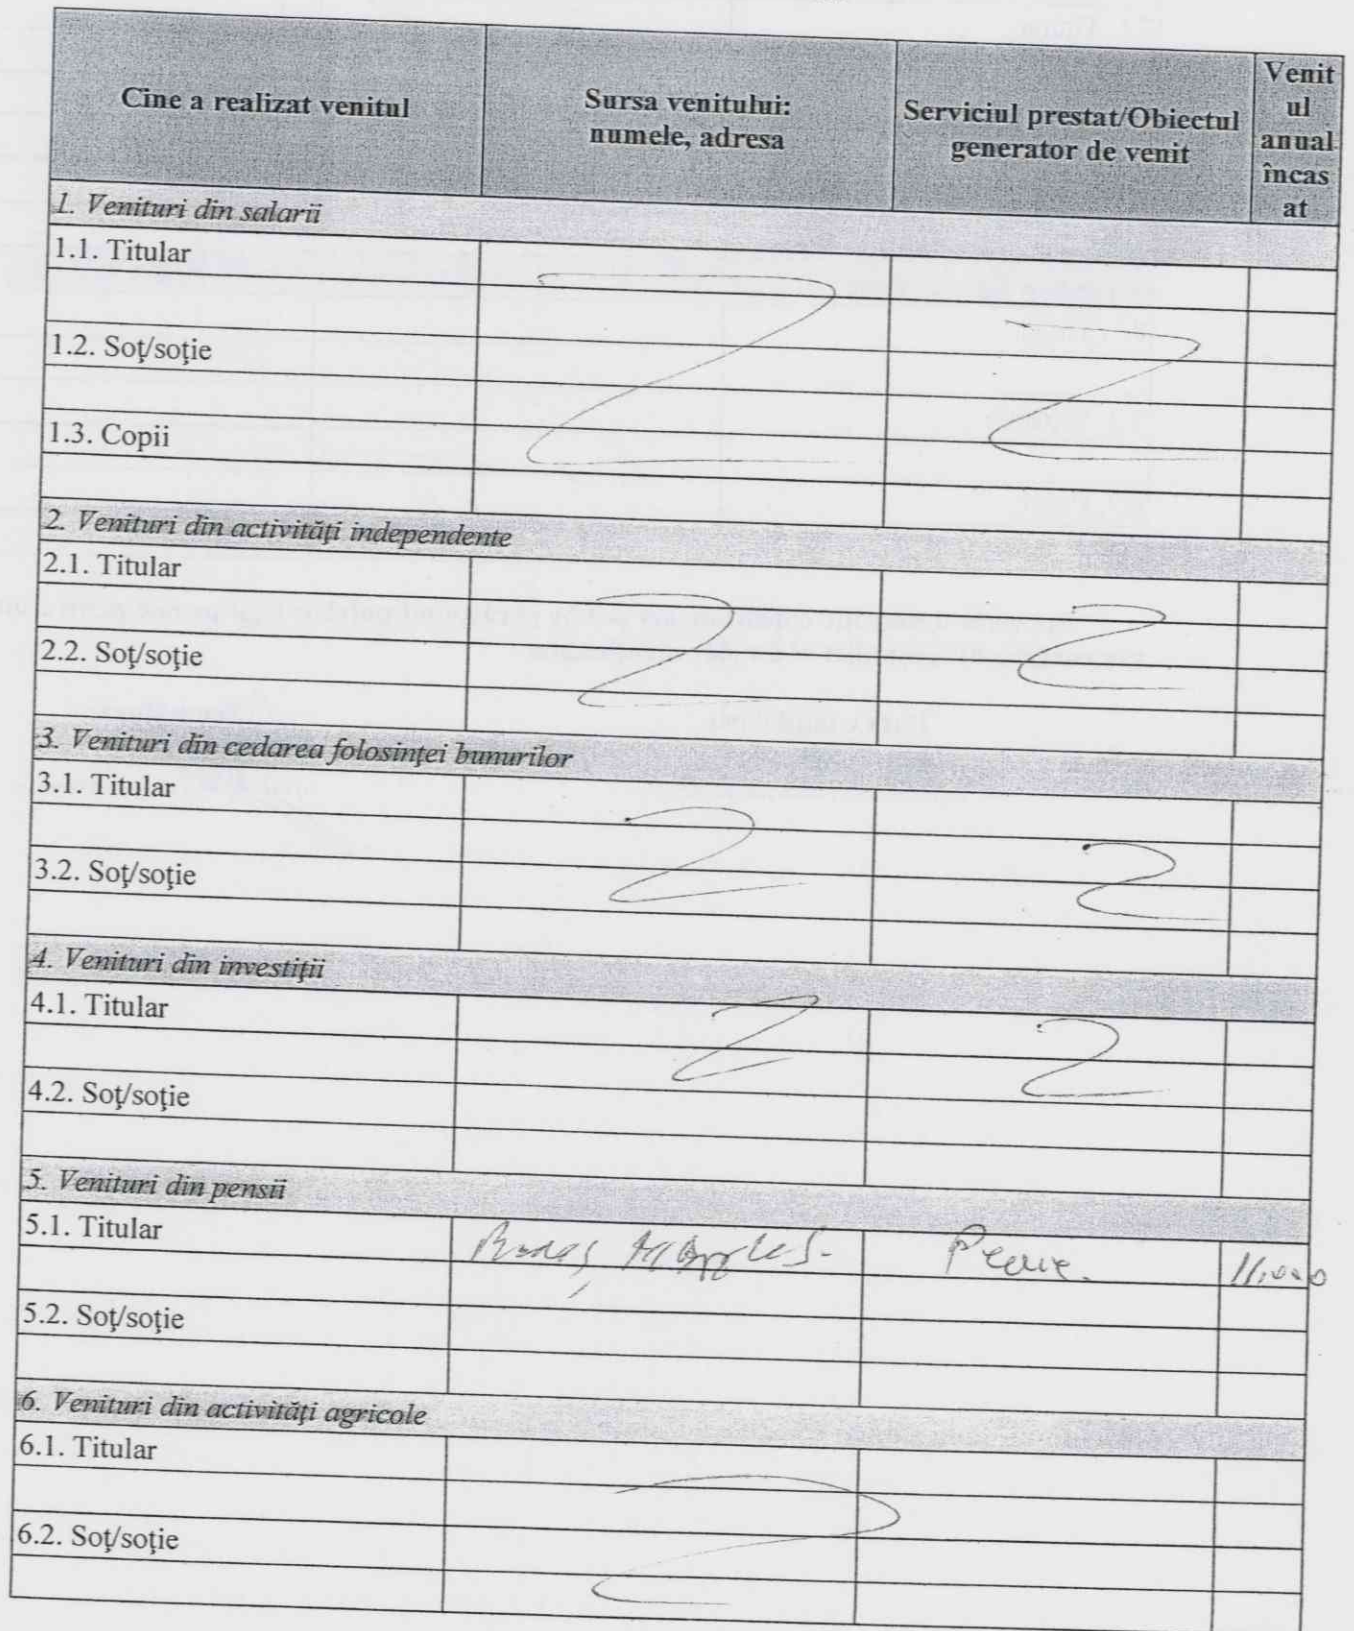 Cine a realizat venitul
Sursa venitului:
numele, adresa
Serviciul prestat/Obiectul
generator de venit
Venit
ul
anual
încas
at
1. Venituri din salarii
1.1. Titular
1.2. Soţ/soţie
1.3. Copii
2. Venituri din activităţi independente
2.1. Titular
2.2. Soţ/soţie
3. Venituri din cedarea folosinţei bunurilor
3.1. Titular
3.2. Soţ/soţie
4. Venituri din investiţii
4.1. Titular
4.2. Soţ/soţie
5. Venituri din pensii
5.1. Titular
5.2. Soţ/soţie
6. Venituri din activităţi agricole
6.1. Titular
6.2. Soţ/soţie